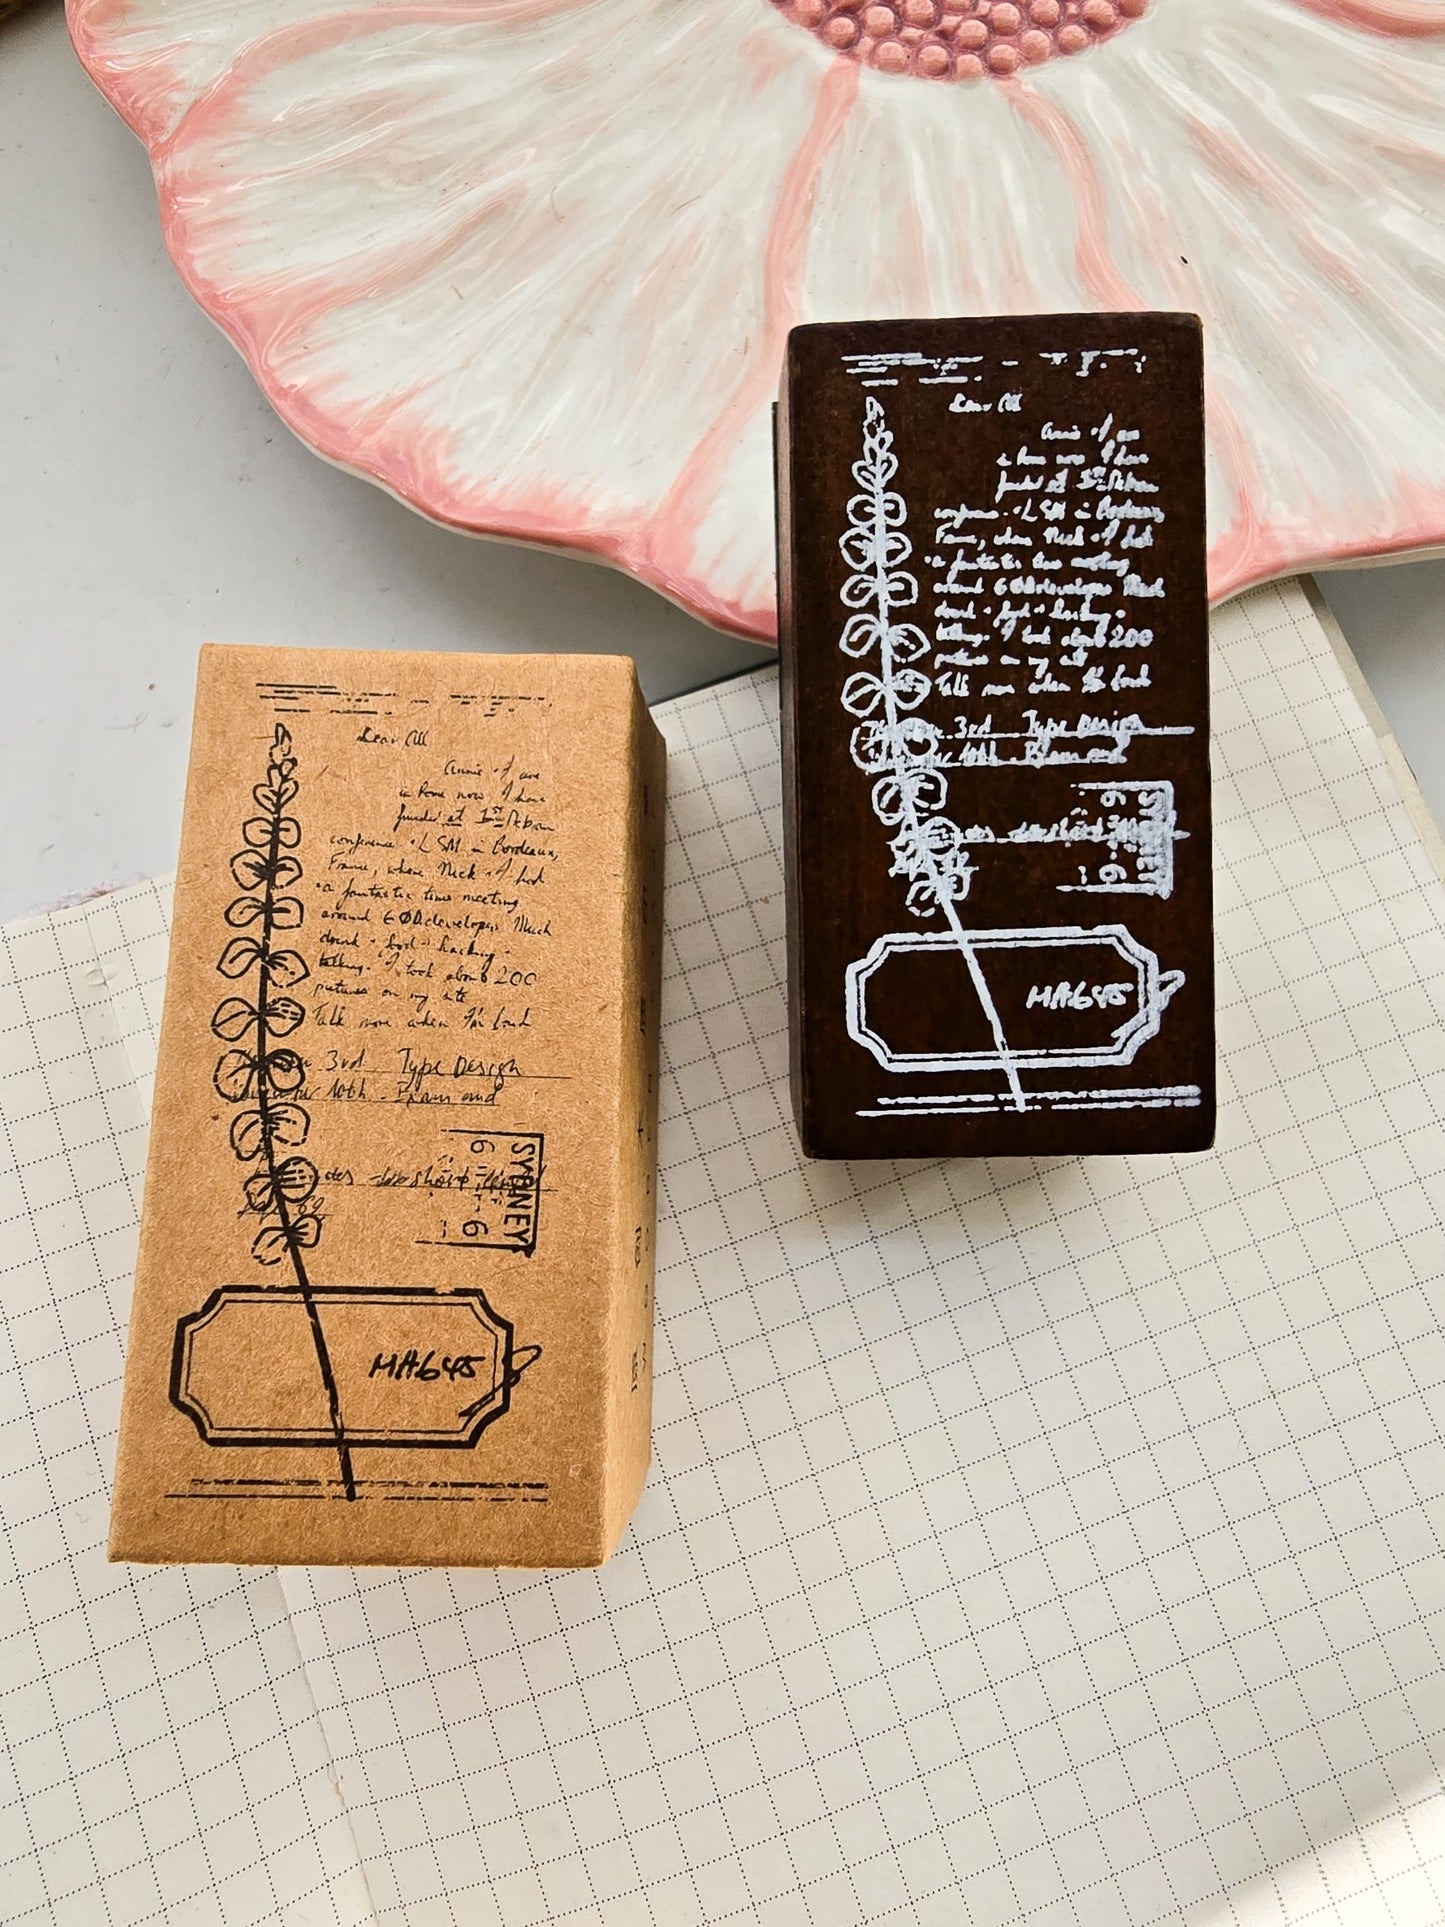 Dear All
Annie & I are
in Rome now. I have
conference · LSM in Bordeaux,
France, where Nick & I had
a fantastic time meeting
around 60 developers Much
drink · food · hacking ·
talking. I took about 200
pictures on my site
Talk more when I'm back
3rd Type Design
10th
SYDNEY
6
6
HA645
Dear All
Annie & I are
in Rome now I have
conference · LSM in Bordeaux,
France, when Nick & I had
a fantastic time meeting
around 60 developers Much
drink · food · hacking ·
talking. I took about 200
pictures on my site
Talk more when I'm back
3rd Type Design
10th
6
6
HA645